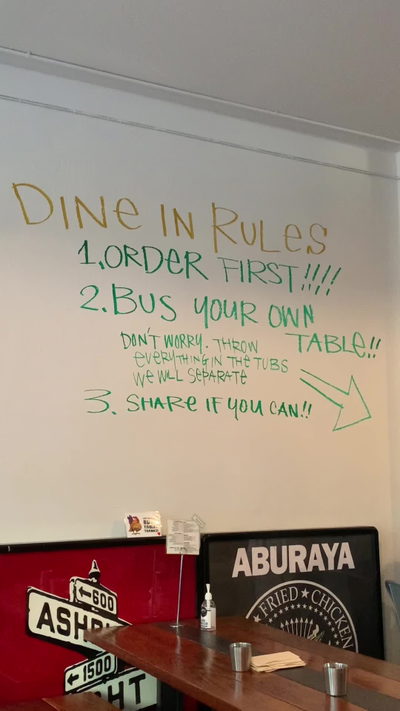 DINE IN RULES
1. ORDER FIRST!!!!
2. BUS YOUR OWN
TABLE!!
DON'T WORRY. THROW
EVERYTHING IN THE TUBS
WE WILL SEPARATE
3. SHARE IF YOU CAN!!
ABURAYA
FRIED CHICKEN
600
ASHB
1500
HT